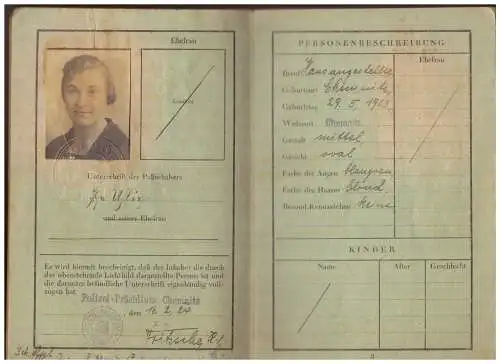 Ehefrau
Unterschrift des Paßinhabers
und seiner Ehefrau
Es wird hiermit bescheinigt, daß der Inhaber die durch
das obenstehende Lichtbild dargestellte Person ist und
die darunter befindliche Unterschrift eigenhändig voll-
zogen hat.
Polizei-Präsidium Chemnitz
den
PERSONENBESCHREIBUNG
Ehefrau
Beruf Hausangestellte
Geburtsort Chemnitz
Geburtstag 29. 5. 1913
Wohnort Chemnitz
Gestalt mittel
Gesicht oval
Farbe der Augen blaugrau
Farbe des Haares blond
Besond. Kennzeichen keine
KINDER
Name Alter Geschlecht